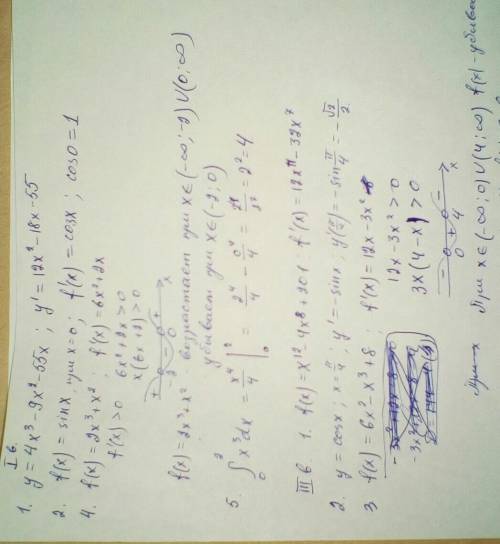 I в.
1. y = 4x³ - 9x² - 55x ; y' = 12x² - 18x - 55
2. f(x) = sinx, при x = 0; f'(x) = cosx ; cos0 = 1
4. f(x) = 2x³ + x² ; f'(x) = 6x² + 2x
f'(x) > 0 6x² + 2x > 0
x(6x + 2) > 0
+ - +
-2 0 x
f(x) = 2x³ + x² возрастает при x ∈ (-∞; -2) ∪ (0; ∞)
убывает при x ∈ (-2; 0)
5. ∫₀² x³dx = x⁴/4 |₀² = 2⁴/4 - 0⁴/4 = 2⁴/2² = 2² = 4
III в. 1. f(x) = x¹² - 4x⁸ + 201 ; f'(x) = 12x¹¹ - 32x⁷
2. y = cosx ; x = π/4 ; y' = -sinx ; y'(π/4) = -sin π/4 = -√2/2.
3 f(x) = 6x² - x³ + 8 ; f'(x) = 12x - 3x²
12x - 3x² > 0
3x(4 - x) > 0
- + -
0 4 x
При x ∈ (-∞; 0) ∪ (4; ∞) f(x) -